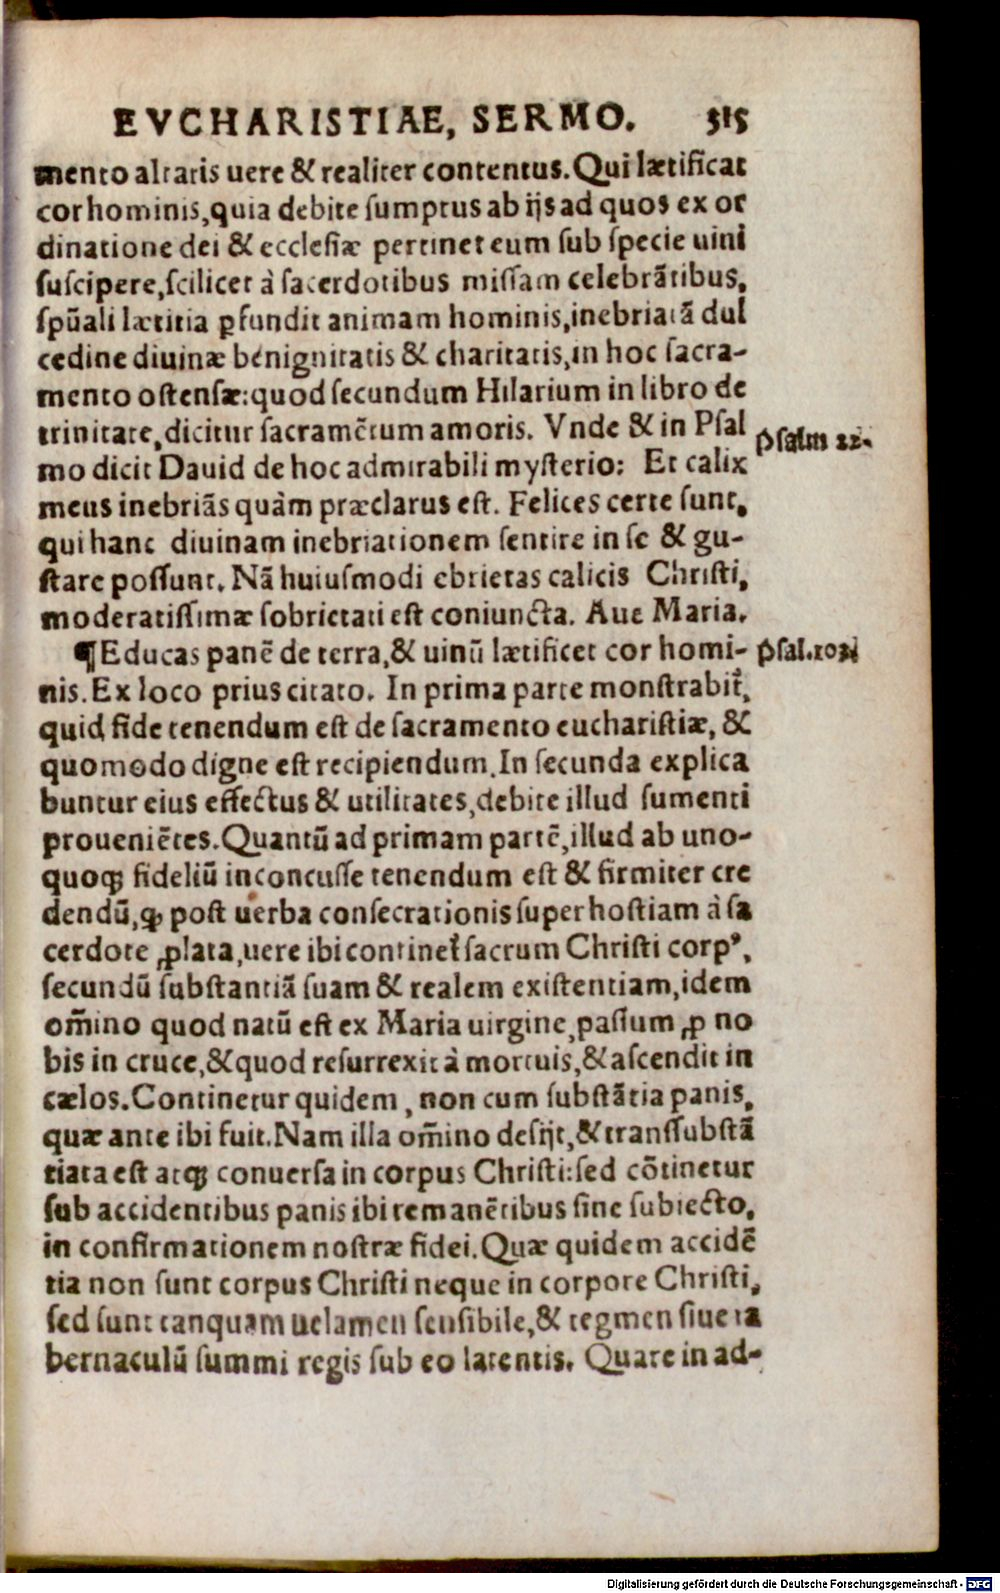 EVCHARISTIAE, SERMO. 315
mento altaris uere & realiter contentus. Qui lætificat
cor hominis, quia debite sumptus ab ijs ad quos ex or
dinatione dei & ecclesiæ pertinet eum sub specie uini
suscipere, scilicet à sacerdotibus missam celebrãtibus,
spũali lætitia ꝑfundit animam hominis, inebriatã dul
cedine diuinæ benignitatis & charitatis, in hoc sacra-
mento ostensæ: quod secundum Hilarium in libro de
trinitate, dicitur sacramẽtum amoris. Vnde & in Psal
Psalm 22.
mo dicit Dauid de hoc admirabili mysterio: Et calix
meus inebriãs quàm præclarus est. Felices certe sunt,
qui hanc diuinam inebriationem sentire in se & gu-
stare possunt. Nã huiusmodi ebrietas calicis Christi,
moderatissimæ sobrietati est coniuncta. Aue Maria.
¶Educas panẽ de terra, & uinũ lætificet cor homi-
Psal. 103
nis. Ex loco prius citato. In prima parte monstrabit᷑,
quid fide tenendum est de sacramento eucharistiæ, &
quomodo digne est recipiendum. In secunda explica
buntur eius effectus & utilitates, debite illud sumenti
proueniẽtes. Quantũ ad primam partẽ, illud ab uno-
quoqꝫ fideliũ inconcusse tenendum est & firmiter cre
dendũ, ꝙ post uerba consecrationis super hostiam à sa
cerdote ꝓlata, uere ibi continet᷑ sacrum Christi corpꝰ,
secundũ substantiã suam & realem existentiam, idem
om̃ino quod natũ est ex Maria uirgine, passum ꝓ no
bis in cruce, & quod resurrexit à mortuis, & ascendit in
cælos. Continetur quidem, non cum substãtia panis,
quæ ante ibi fuit. Nam illa om̃ino desijt, & transsubstã
tiata est atqꝫ conuersa in corpus Christi: sed cõtinetur
sub accidentibus panis ibi remanẽtibus sine subiecto,
in confirmationem nostræ fidei. Quæ quidem accidẽ
tia non sunt corpus Christi neque in corpore Christi,
sed sunt tanquam uelamen sensibile, & tegmen siue ta
bernaculũ summi regis sub eo latentis. Quare in ad-
Digitalisierung gefördert durch die Deutsche Forschungsgemeinschaft - DFG